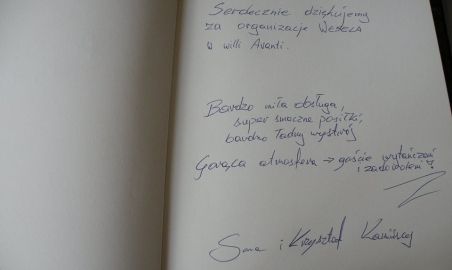 Serdecznie dziękujemy
za organizację Wesela
w willi Avanti.
Bardzo miła obsługa,
super smaczne posiłki,
bardzo ładny wystrój
Gorąca atmosfera → goście wytańczeni
i zadowoleni!
i Krzysztof